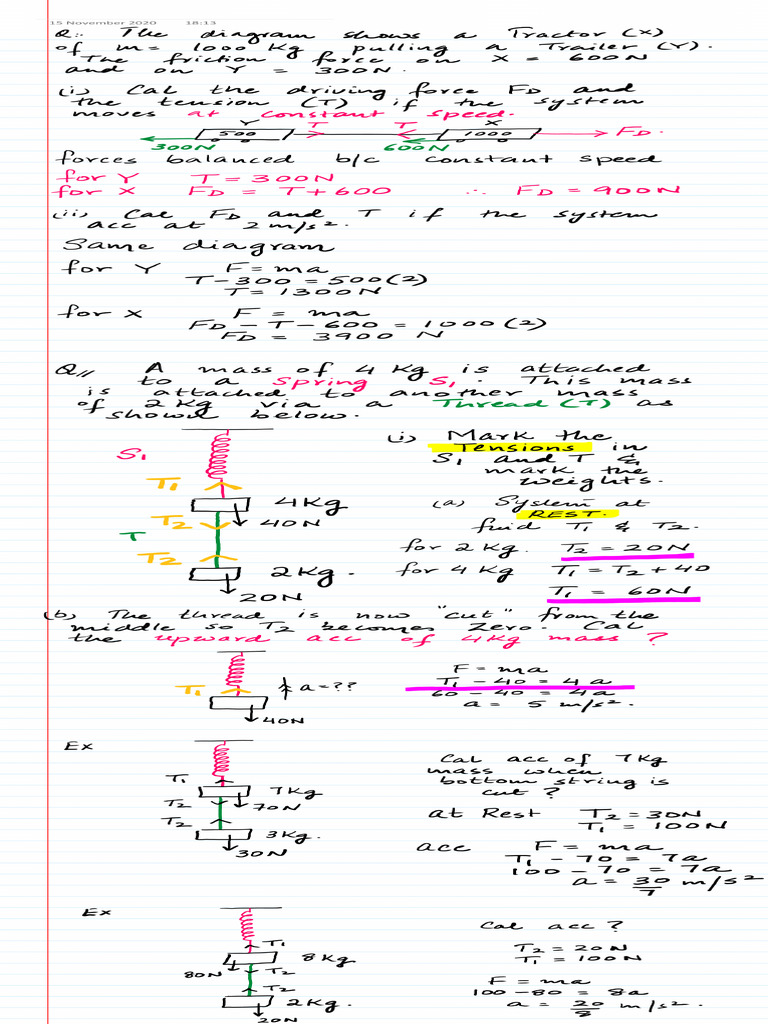 15 November 2020 18:13
Q:. The diagram shows a Tractor (X)
of m = 1000 Kg pulling a Trailer (Y).
The friction force on X = 600N
and on Y = 300N.
(i) Cal the driving force FD and
the tension (T) if the system
moves at constant speed.
Y T T X
500 1000 FD.
300N 600N
forces balanced b/c constant speed
for Y T = 300N
for X FD = T + 600 ∴ FD = 900N
(ii) Cal FD and T if the system
acc at 2 m/s².
Same diagram
for Y F = ma
T - 300 = 500(2)
T = 1300N
for X F = ma
FD - T - 600 = 1000(2)
FD = 3900 N
Q,, A mass of 4 Kg is attached
to a spring S1. This mass
is attached to another mass
of 2Kg via a Thread(T) as
shown below.
S1
T1
4Kg
T2 40N
T
T2
2Kg.
20N
(i) Mark the
Tensions in
S1 and T &
mark the
weights.
(a) System at
REST.
find T1 & T2.
for 2 Kg. T2 = 20N
for 4 Kg T1 = T2 + 40
T1 = 60N
(b) The thread is now "cut" from the
middle so T2 becomes zero. Cal
the upward acc of 4Kg mass ?
T1 a = ??
40N
F = ma
T1 - 40 = 4a
60 - 40 = 4a
a = 5 m/s².
Ex
T1
7Kg
T2 70N
T2
3Kg.
30N
Cal acc of 7Kg
mass when
bottom string is
cut ?
at Rest T2 = 30N
T1 = 100N
acc F = ma
T1 - 70 = 7a
100 - 70 = 7a
a = 30/7 m/s²
Ex
T1
8Kg
80N T2
T2
2Kg.
20N
Cal acc ?
T2 = 20N
T1 = 100N
F = ma
100 - 80 = 8a
a = 20/8 m/s².